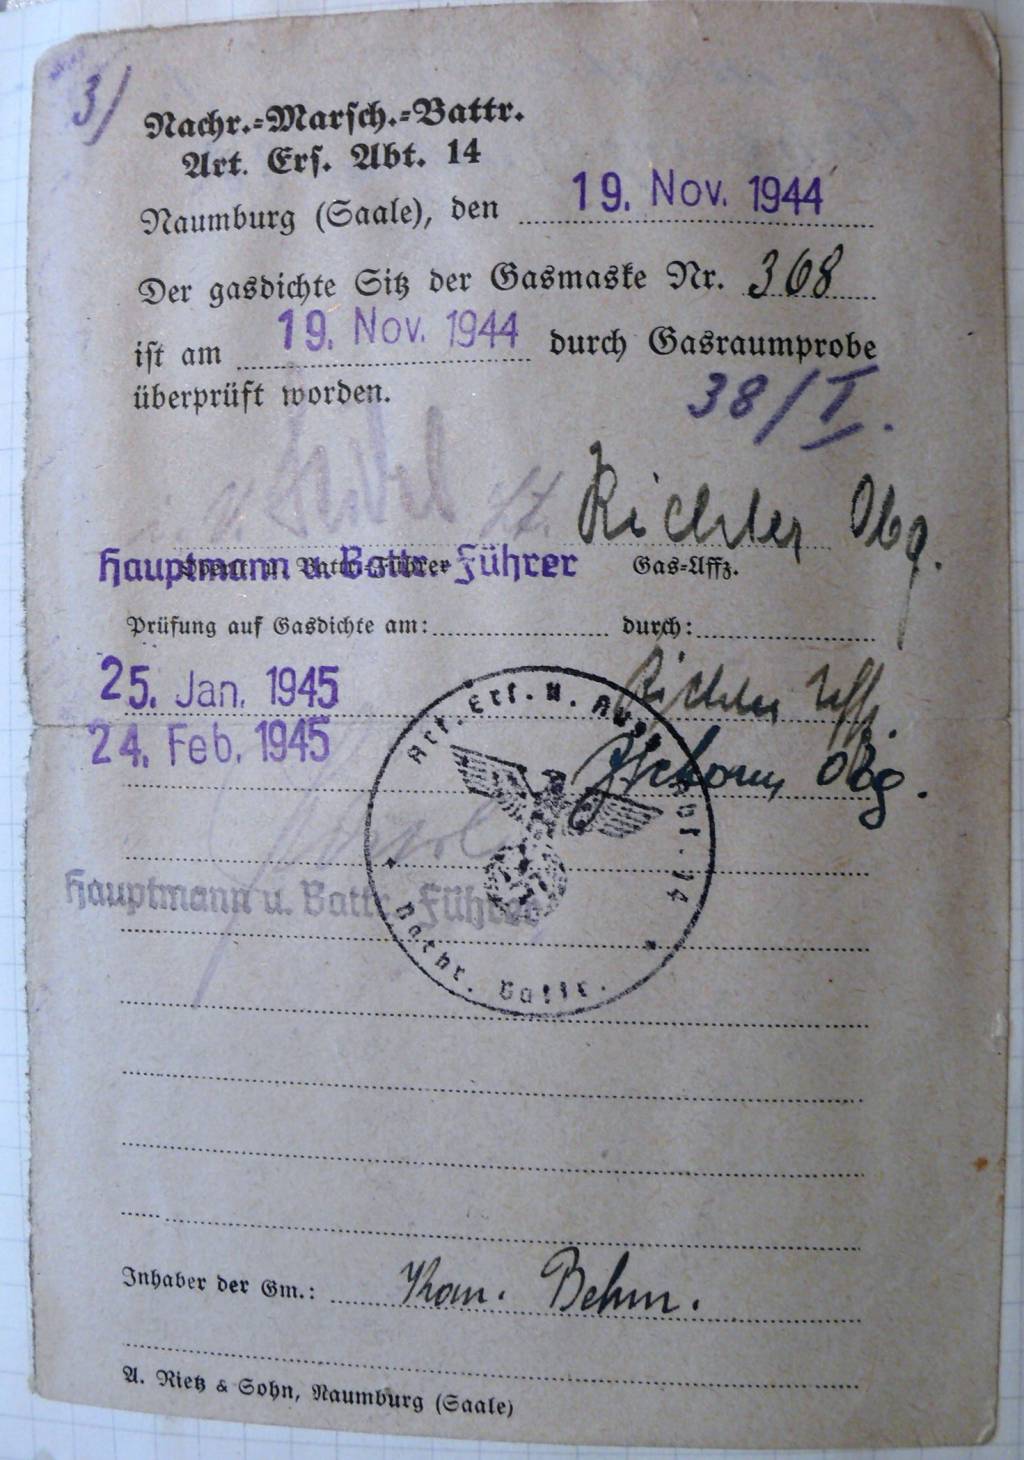 3/
Nachr.-Marsch.-Battr.
Art. Ers. Abt. 14
Naumburg (Saale), den 19. Nov. 1944
Der gasdichte Sitz der Gasmaske Nr. 368
ist am 19. Nov. 1944 durch Gasraumprobe
überprüft worden.
38/I.
Lt. Richter Obg.
Hauptmann u. Battr.-Führer Gas-Uffz.
Prüfung auf Gasdichte am: durch:
25. Jan. 1945 Richter Uffz.
24. Feb. 1945 Obg.
Hauptmann u. Battr.-Führer
Art. Ers. u. Ausb. Abt. 14
Nachr. Battr.
Inhaber der Gm.: Kan. Behm.
A. Rietz & Sohn, Naumburg (Saale)